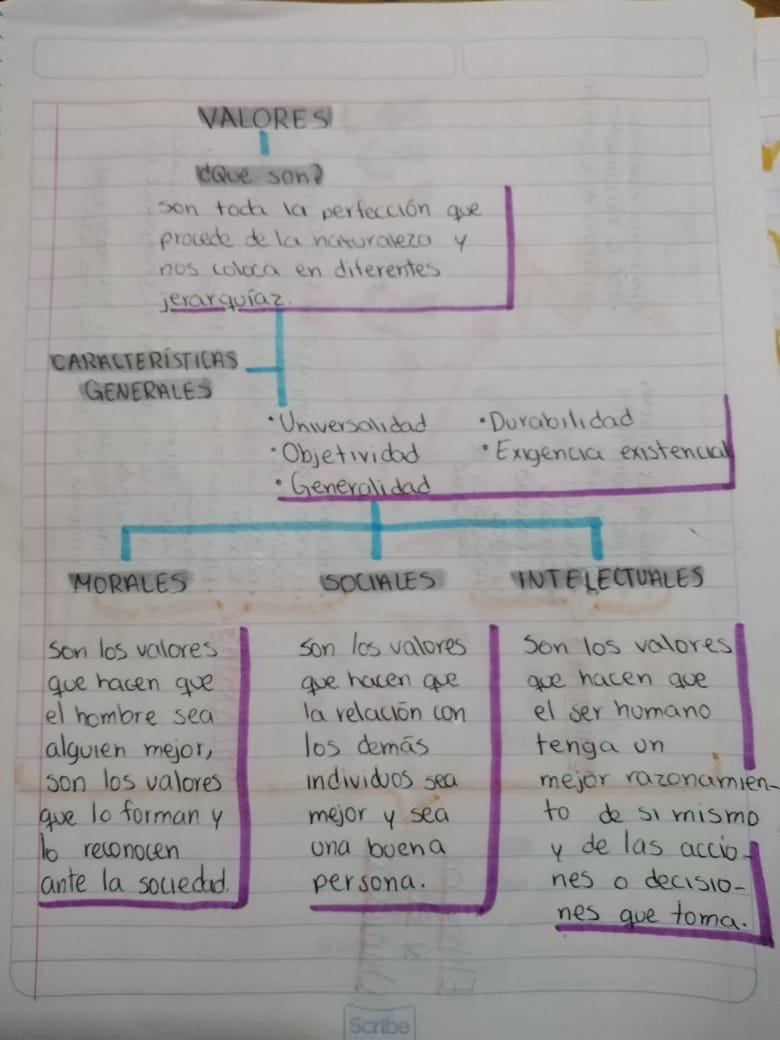 VALORES
¿Que son?
son toda la perfección que
procede de la naturaleza y
nos coloca en diferentes
jerarquíaz.
CARACTERÍSTICAS
GENERALES
• Universalidad
• Objetividad
• Generalidad
• Durabilidad
• Exigencia existencial
MORALES
son los valores
que hacen que
el hombre sea
alguien mejor,
son los valores
que lo forman y
lo reconocen
ante la sociedad.
SOCIALES
son los valores
que hacen que
la relación con
los demás
individuos sea
mejor y sea
una buena
persona.
INTELECTUALES
Son los valores
que hacen que
el ser humano
tenga un
mejor razonamien-
to de si mismo
y de las accio-
nes o decisio-
nes que toma.
Scribe